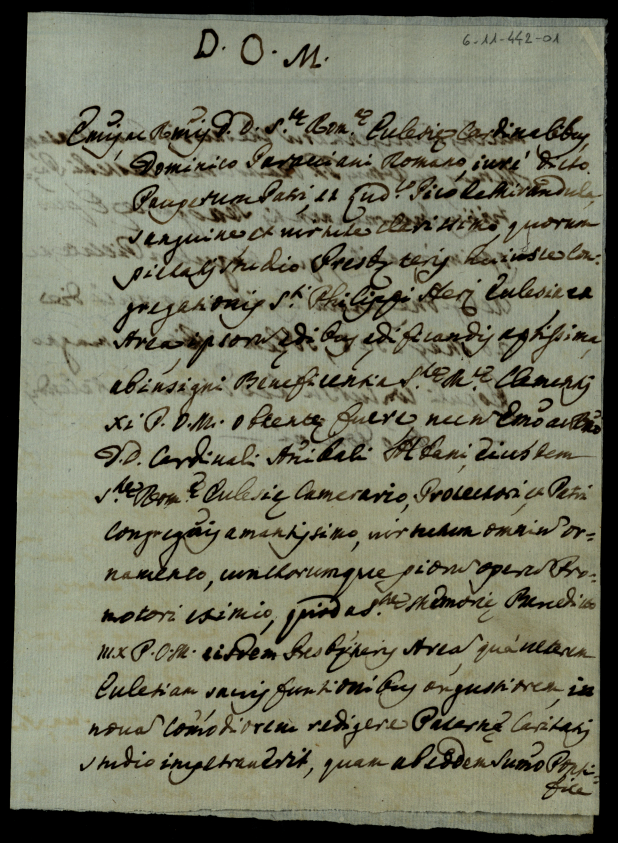 6-11-442-01
D. O. M.
Emis, ac Rmis D. D. S.te Rom.e Eclesie Cardinalibus
Dominico Paracciani Romano, iure dicto
Pauperum Patri, et Lud.o Pico de Mirandula,
sanguine et virtute clarissimo, quorum
pietatis studio Presbyteris huiusce Con-
gregationis S.ti Philippi Nerij Eclesia et
Area ipsorum edibus edificandis aptissima,
ab insigni Beneficentia S.te M.e Clementis
XI P. O. M. obtente fuere, necnon Emo ac Rmo
D. D. Cardinali Anibali Albani, eiusdem
S.te Rom.e Eclesie Camerario, Protectori, et Patri
Congregnis amantissimo, virtutum omniu or=
namento, cunctorumque pioru operu Pro-
motori eximio, quod a S.te Memorie Benedicto
XIII P. O. M. eisdem Presbyteris Area, qua veterem
Eclesiam sacris funtionibus angustiorem in
nova comodiorem redigere Paterne Caritatis
studio impetraverit, quam ab eodem Sumo Ponti-
fice